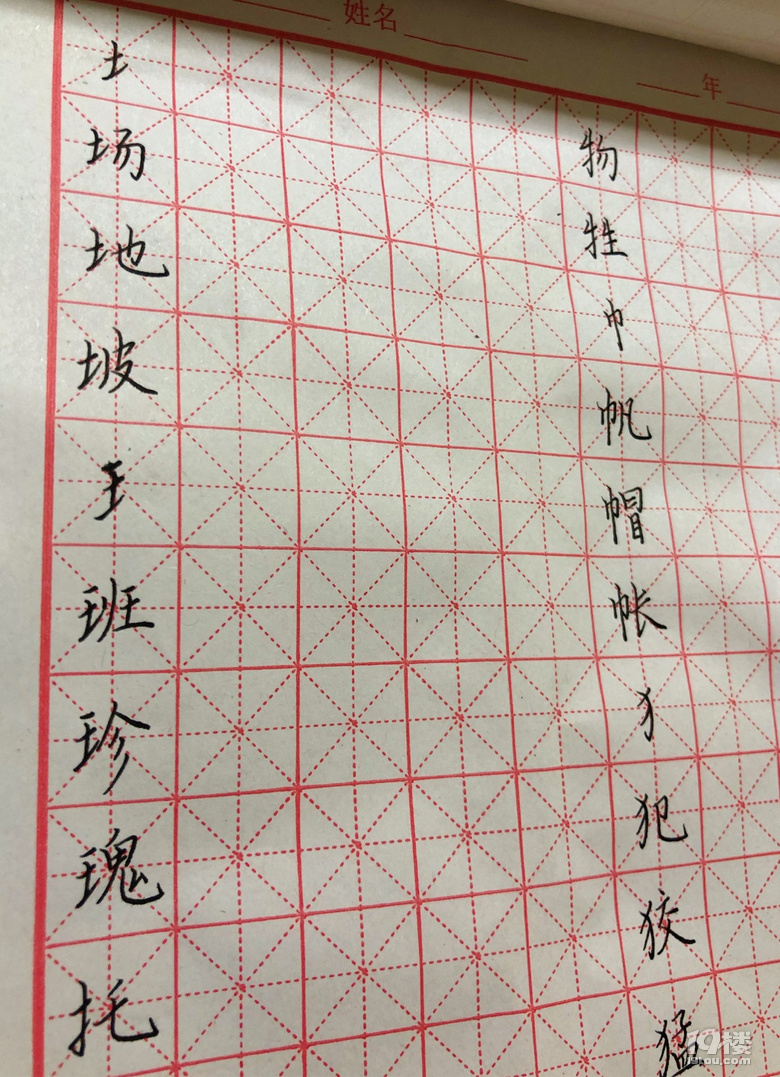 姓名
年
土
场
地
坡
王
班
珍
瑰
托
物
牲
巾
帆
帽
帐
犭
犯
狡
猛
19楼
19lou.com